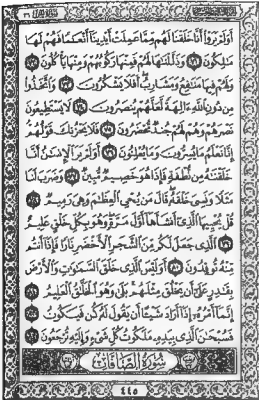 أَوَلَمْ يَرَوْا أَنَّا خَلَقْنَا لَهُم مِّمَّا عَمِلَتْ أَيْدِينَا أَنْعَٰمًا فَهُمْ لَهَا
مَٰلِكُونَ ٧١ وَذَلَّلْنَٰهَا لَهُمْ فَمِنْهَا رَكُوبُهُمْ وَمِنْهَا يَأْكُلُونَ ٧٢
وَلَهُمْ فِيهَا مَنَٰفِعُ وَمَشَارِبُ أَفَلَا يَشْكُرُونَ ٧٣ وَاتَّخَذُوا
مِن دُونِ اللَّهِ ءَالِهَةً لَّعَلَّهُمْ يُنصَرُونَ ٧٤ لَا يَسْتَطِيعُونَ
نَصْرَهُمْ وَهُمْ لَهُمْ جُندٌ مُّحْضَرُونَ ٧٥ فَلَا يَحْزُنكَ قَوْلُهُمْ
إِنَّا نَعْلَمُ مَا يُسِرُّونَ وَمَا يُعْلِنُونَ ٧٦ أَوَلَمْ يَرَ الْإِنسَٰنُ أَنَّا
خَلَقْنَٰهُ مِن نُّطْفَةٍ فَإِذَا هُوَ خَصِيمٌ مُّبِينٌ ٧٧ وَضَرَبَ لَنَا
مَثَلًا وَنَسِيَ خَلْقَهُ قَالَ مَن يُحْيِ الْعِظَٰمَ وَهِيَ رَمِيمٌ ٧٨
قُلْ يُحْيِيهَا الَّذِي أَنشَأَهَا أَوَّلَ مَرَّةٍ وَهُوَ بِكُلِّ خَلْقٍ عَلِيمٌ
٧٩ الَّذِي جَعَلَ لَكُم مِّنَ الشَّجَرِ الْأَخْضَرِ نَارًا فَإِذَا أَنتُم
مِّنْهُ تُوقِدُونَ ٨٠ أَوَلَيْسَ الَّذِي خَلَقَ السَّمَٰوَٰتِ وَالْأَرْضَ
بِقَٰدِرٍ عَلَىٰ أَن يَخْلُقَ مِثْلَهُم بَلَىٰ وَهُوَ الْخَلَّٰقُ الْعَلِيمُ ٨١
إِنَّمَا أَمْرُهُ إِذَا أَرَادَ شَيْئًا أَن يَقُولَ لَهُ كُن فَيَكُونُ ٨٢
فَسُبْحَٰنَ الَّذِي بِيَدِهِ مَلَكُوتُ كُلِّ شَيْءٍ وَإِلَيْهِ تُرْجَعُونَ ٨٣
سُورَةُ الصَّافَّاتِ
٤٤٥